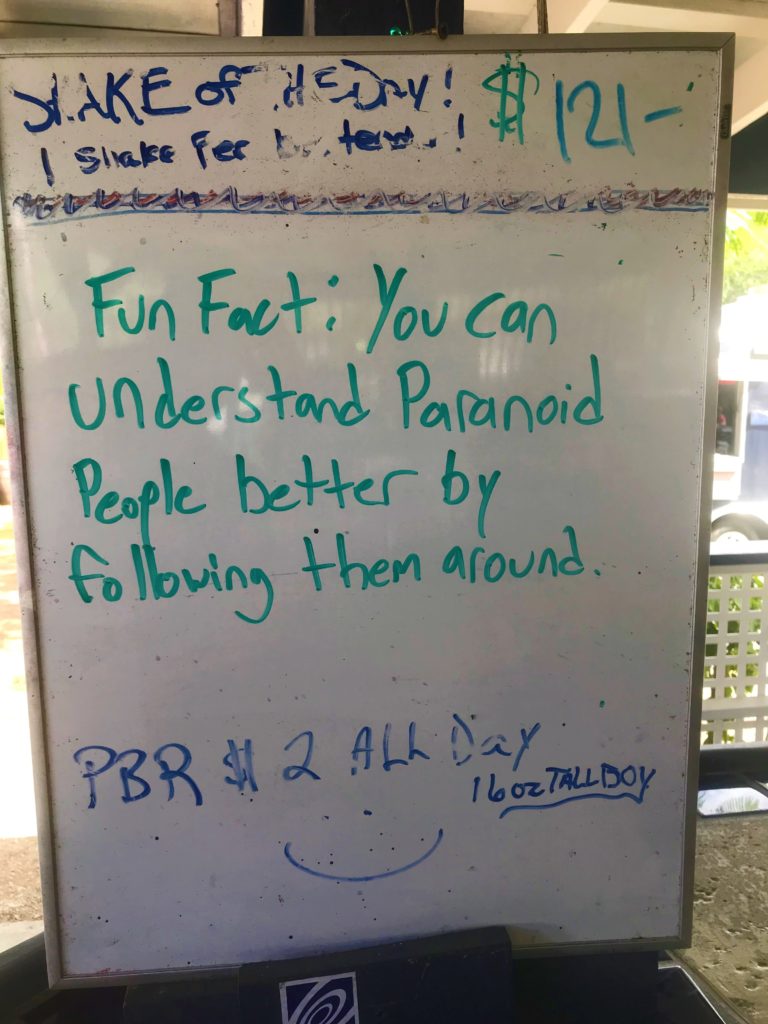 SHAKE of THE DAY! $121-
1 Shake Per bartender!
Fun Fact: You can
understand Paranoid
People better by
following them around.
PBR $2 ALL Day
16oz TALL BOY